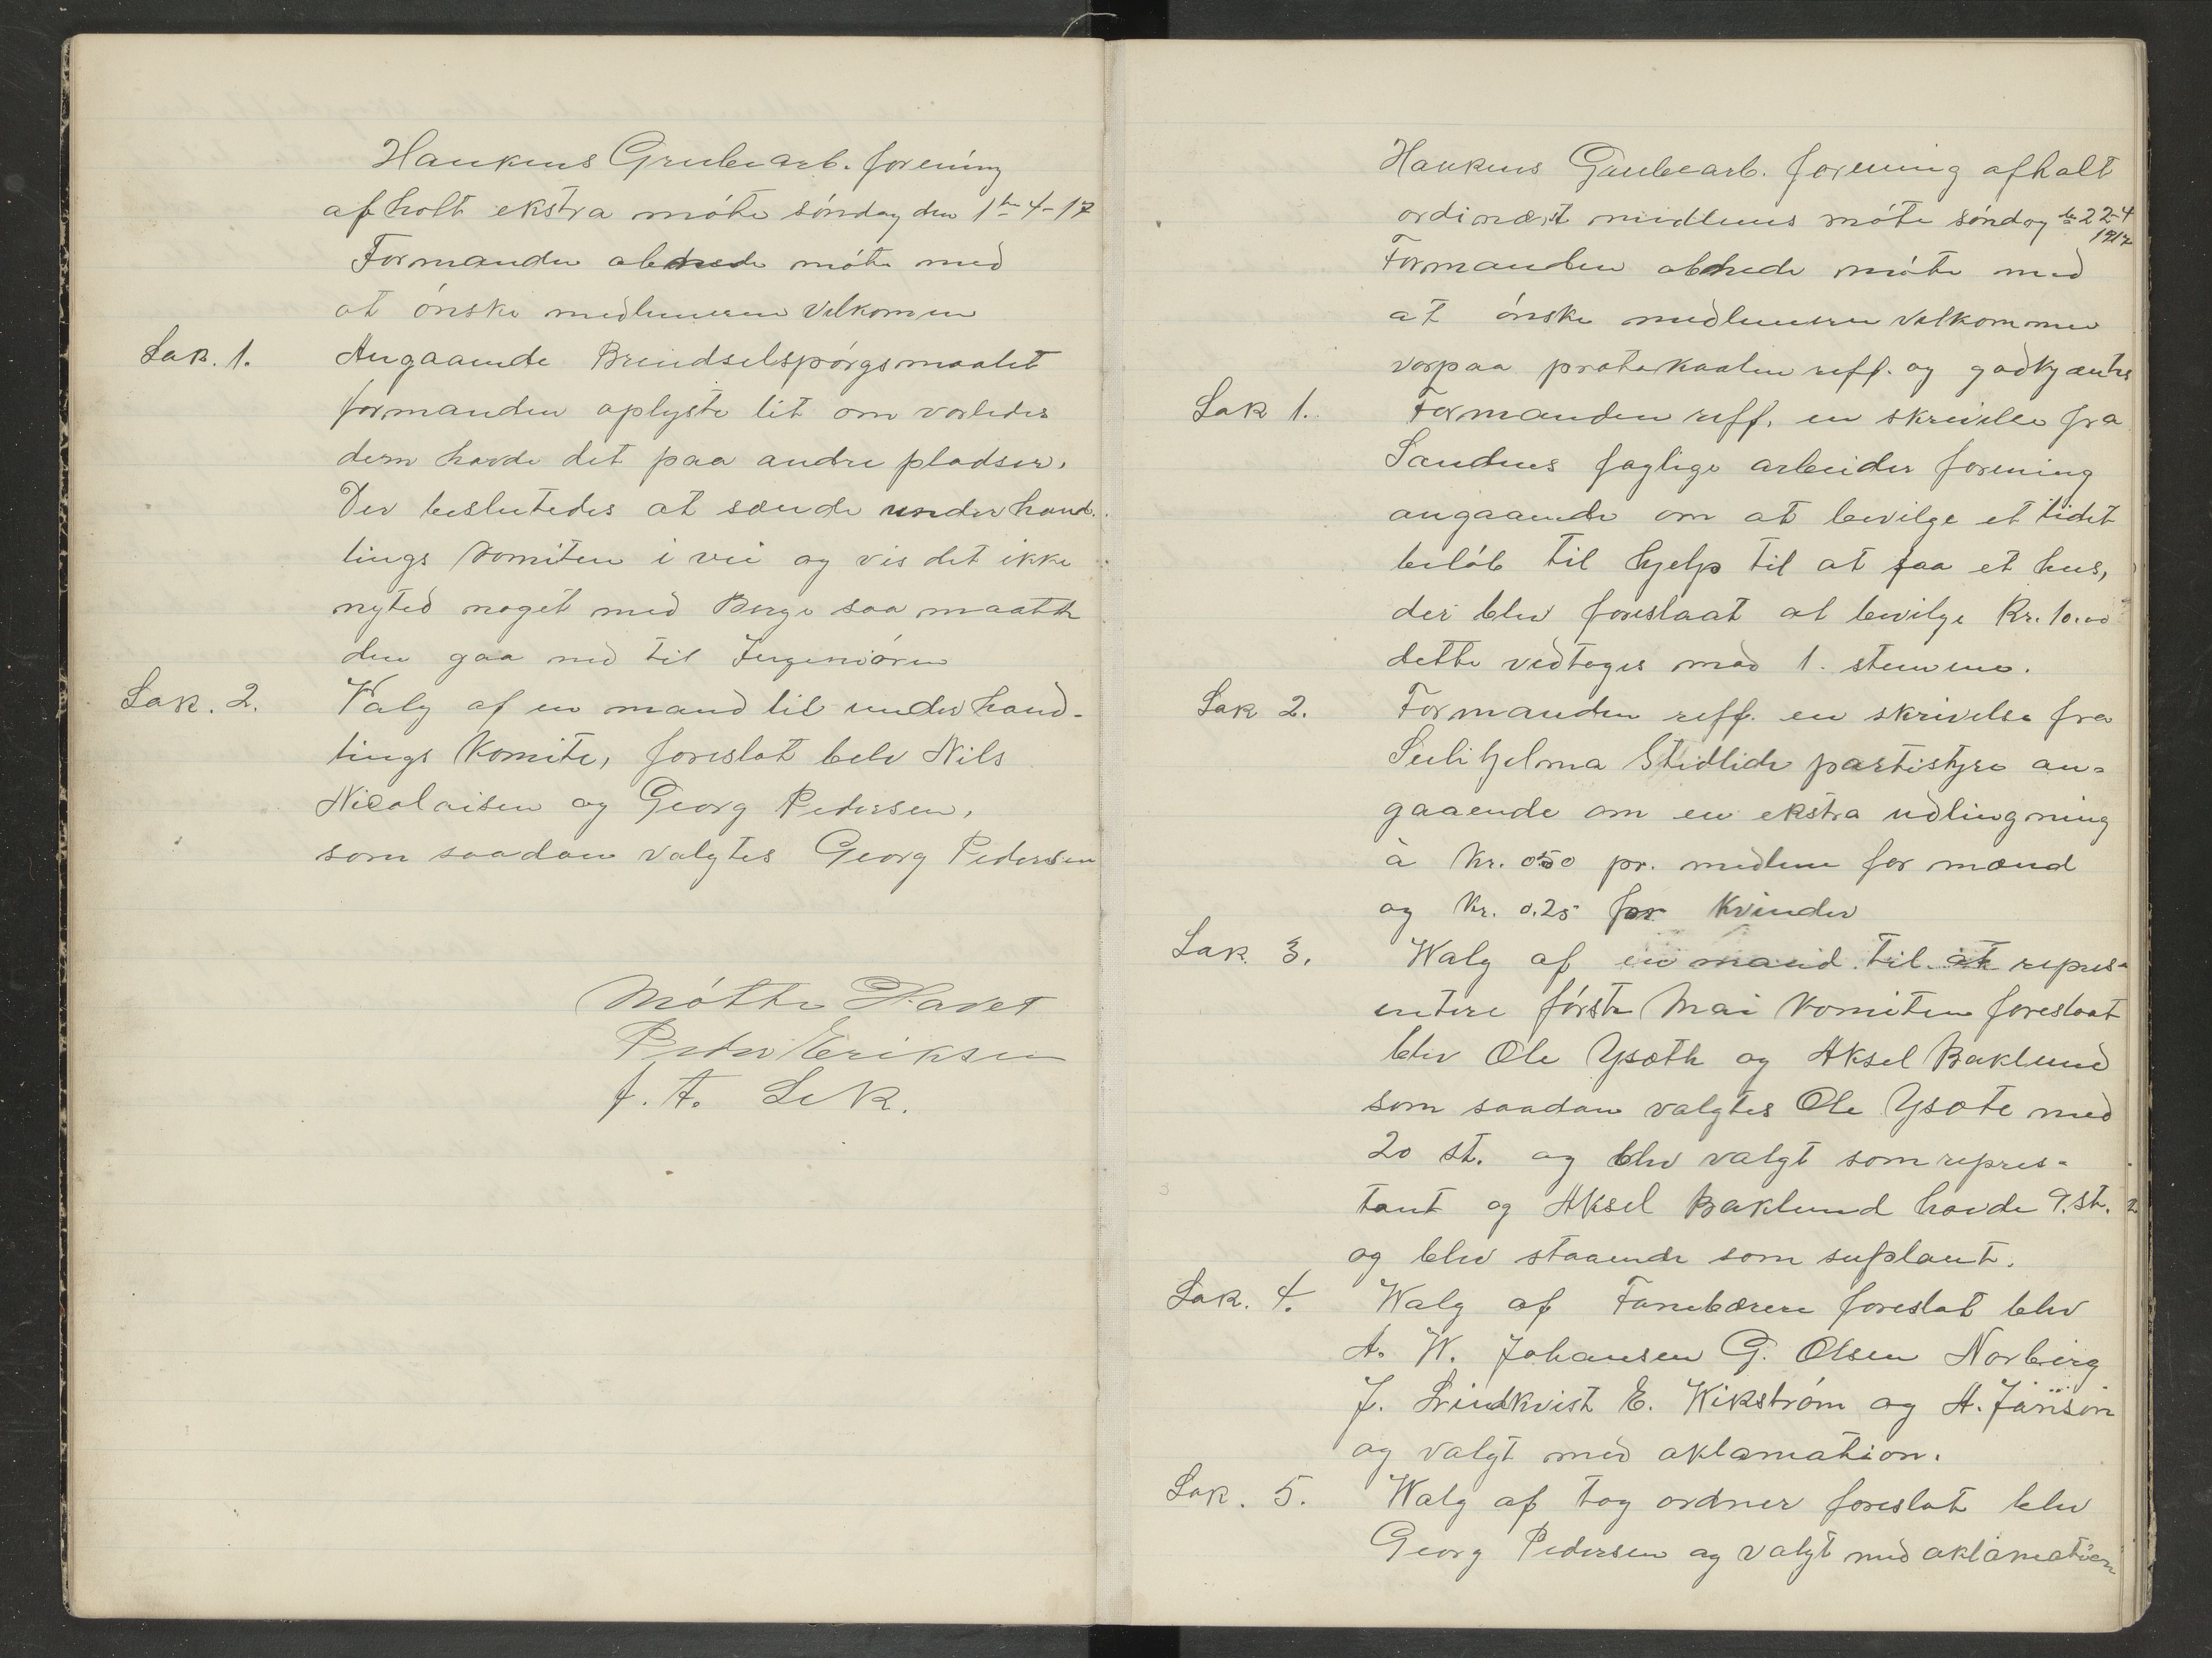 Hankens Grubearb. forening
afholt ekstra móte sóndag den 1te 4-17
Formanden abnede móte med
at ónske medlemeren Velkomen
Sak. 1. Angaaende Brendselspórgsmaalet
formanden oplyste lit om vorledes
dem havde det paa andre pladser.
Der beslutedes at sænde underhand-
lings komiten i vei og vis det ikke
nyted noget med Berge saa maatte
den gaa ned til Ingeniören
Sak. 2. Valg af en mand til underhand-
lings Komite, foreslot belv Nils
Nicolaisen og Georg Pedersen,
som saadan valgtes Georg Pedersen
Mótte Havet
Peder Eriksen
f. t. Sek.
Hankens Grubearb. forening afholt
ordinært medlems móte sóndag de 22-4
1917
Formanden abnede móte med
at ónske medlemeren Velkommen
vorpaa protokaalen reff. og godkjæntes
Sak 1. Formanden reff. en skrivelse fra
Sandnes faglige arbeider forening
angaaende om at bevilge et lidet
belób til hjelp til at faa et hus,
der blev foreslaat at bevilge Kr. 10.00
dette vedtoges mod 1. stemme.
Sak 2. Formanden reff. en skrivelse fra
Sulihjelma Stedlide partistyre an-
gaaende om en ekstra udlingning
à Kr. 050 pr. medlem for mænd
og Kr. 0.25 for Kvinder
Sak. 3. Walg af en mand til at repres-
entere fórste Mai komiten foreslaat
blev Ole Ysæth og Aksel Baklund
som saadan valgtes Ole Ysote med
20 st. og blev valgt som repres-
tant og Aksel Baklund havde 9. st.
og blev staaende som suplant.
Sak. 4. Walg af Fanebærere foreslat blev
A. W. Johansen G. Olsen Norberg
J. Lindkvist E. Wikstróm og A. Jänson
og valgt med aklamation.
Sak. 5. Walg af tog ordner foreslot blev
Georg Pedersen og valgt med aklamation